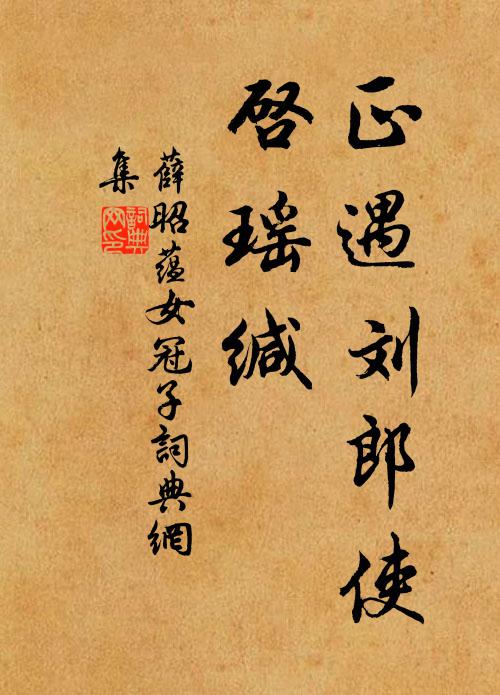 正遇刘郎使
启瑶缄
薛昭蕴女冠子詞典網
集
詞典
网印